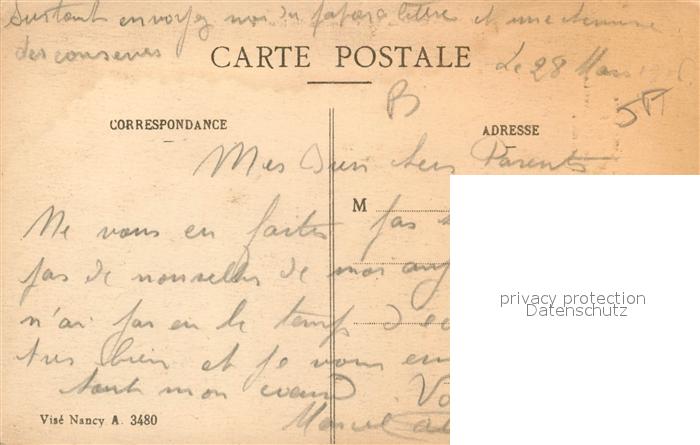 Surtout envoyez moi du papier a lettre et une chemise
des conserves
CARTE POSTALE
Le 28 Mars
CORRESPONDANCE
ADRESSE
Mes Bien chers Parents
M
Ne vous en faites pas
pas de nouvelles de moi
n'ai pas eu le temps
très bien et je vous
tout mon coeur. Vo
Marcel
Visé Nancy A. 3480
privacy protection
Datenschutz